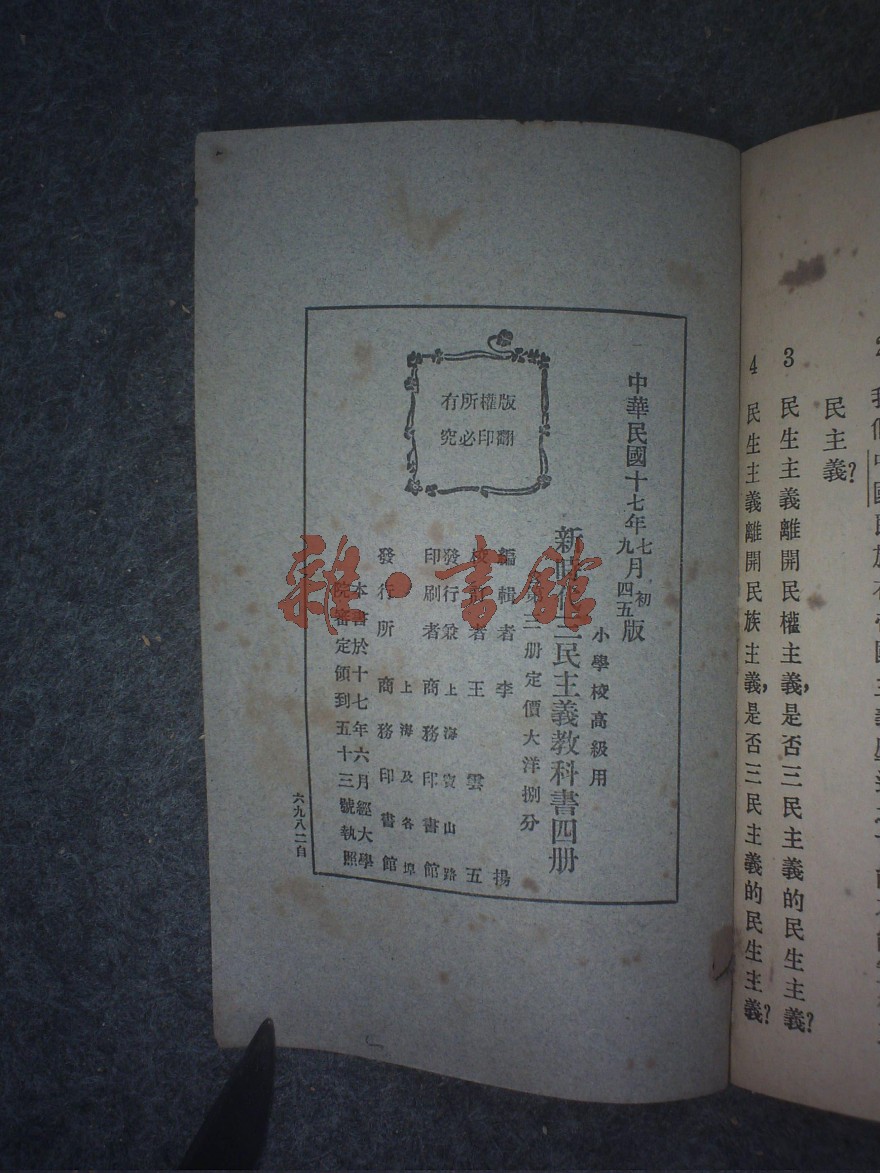 民主義?
3 民生主義離開民權主義,是否三民主義的民生主義?
4 民生主義離開民族主義,是否三民主義的民生主義?
中華民國十七年七月初版
九 四五
小學校高級用
新時代三民主義教科書四册
第三册定價大洋捌分
編輯者 李揚
校訂者 王雲五
發行兼 上海寶山路
印刷者 商務印書館
上海及各埠
發行所 商務印書館
本書於十七年六月經大學
院審定領到五十三號執照
版權所有
翻印必究
六九八二自
雜·書館